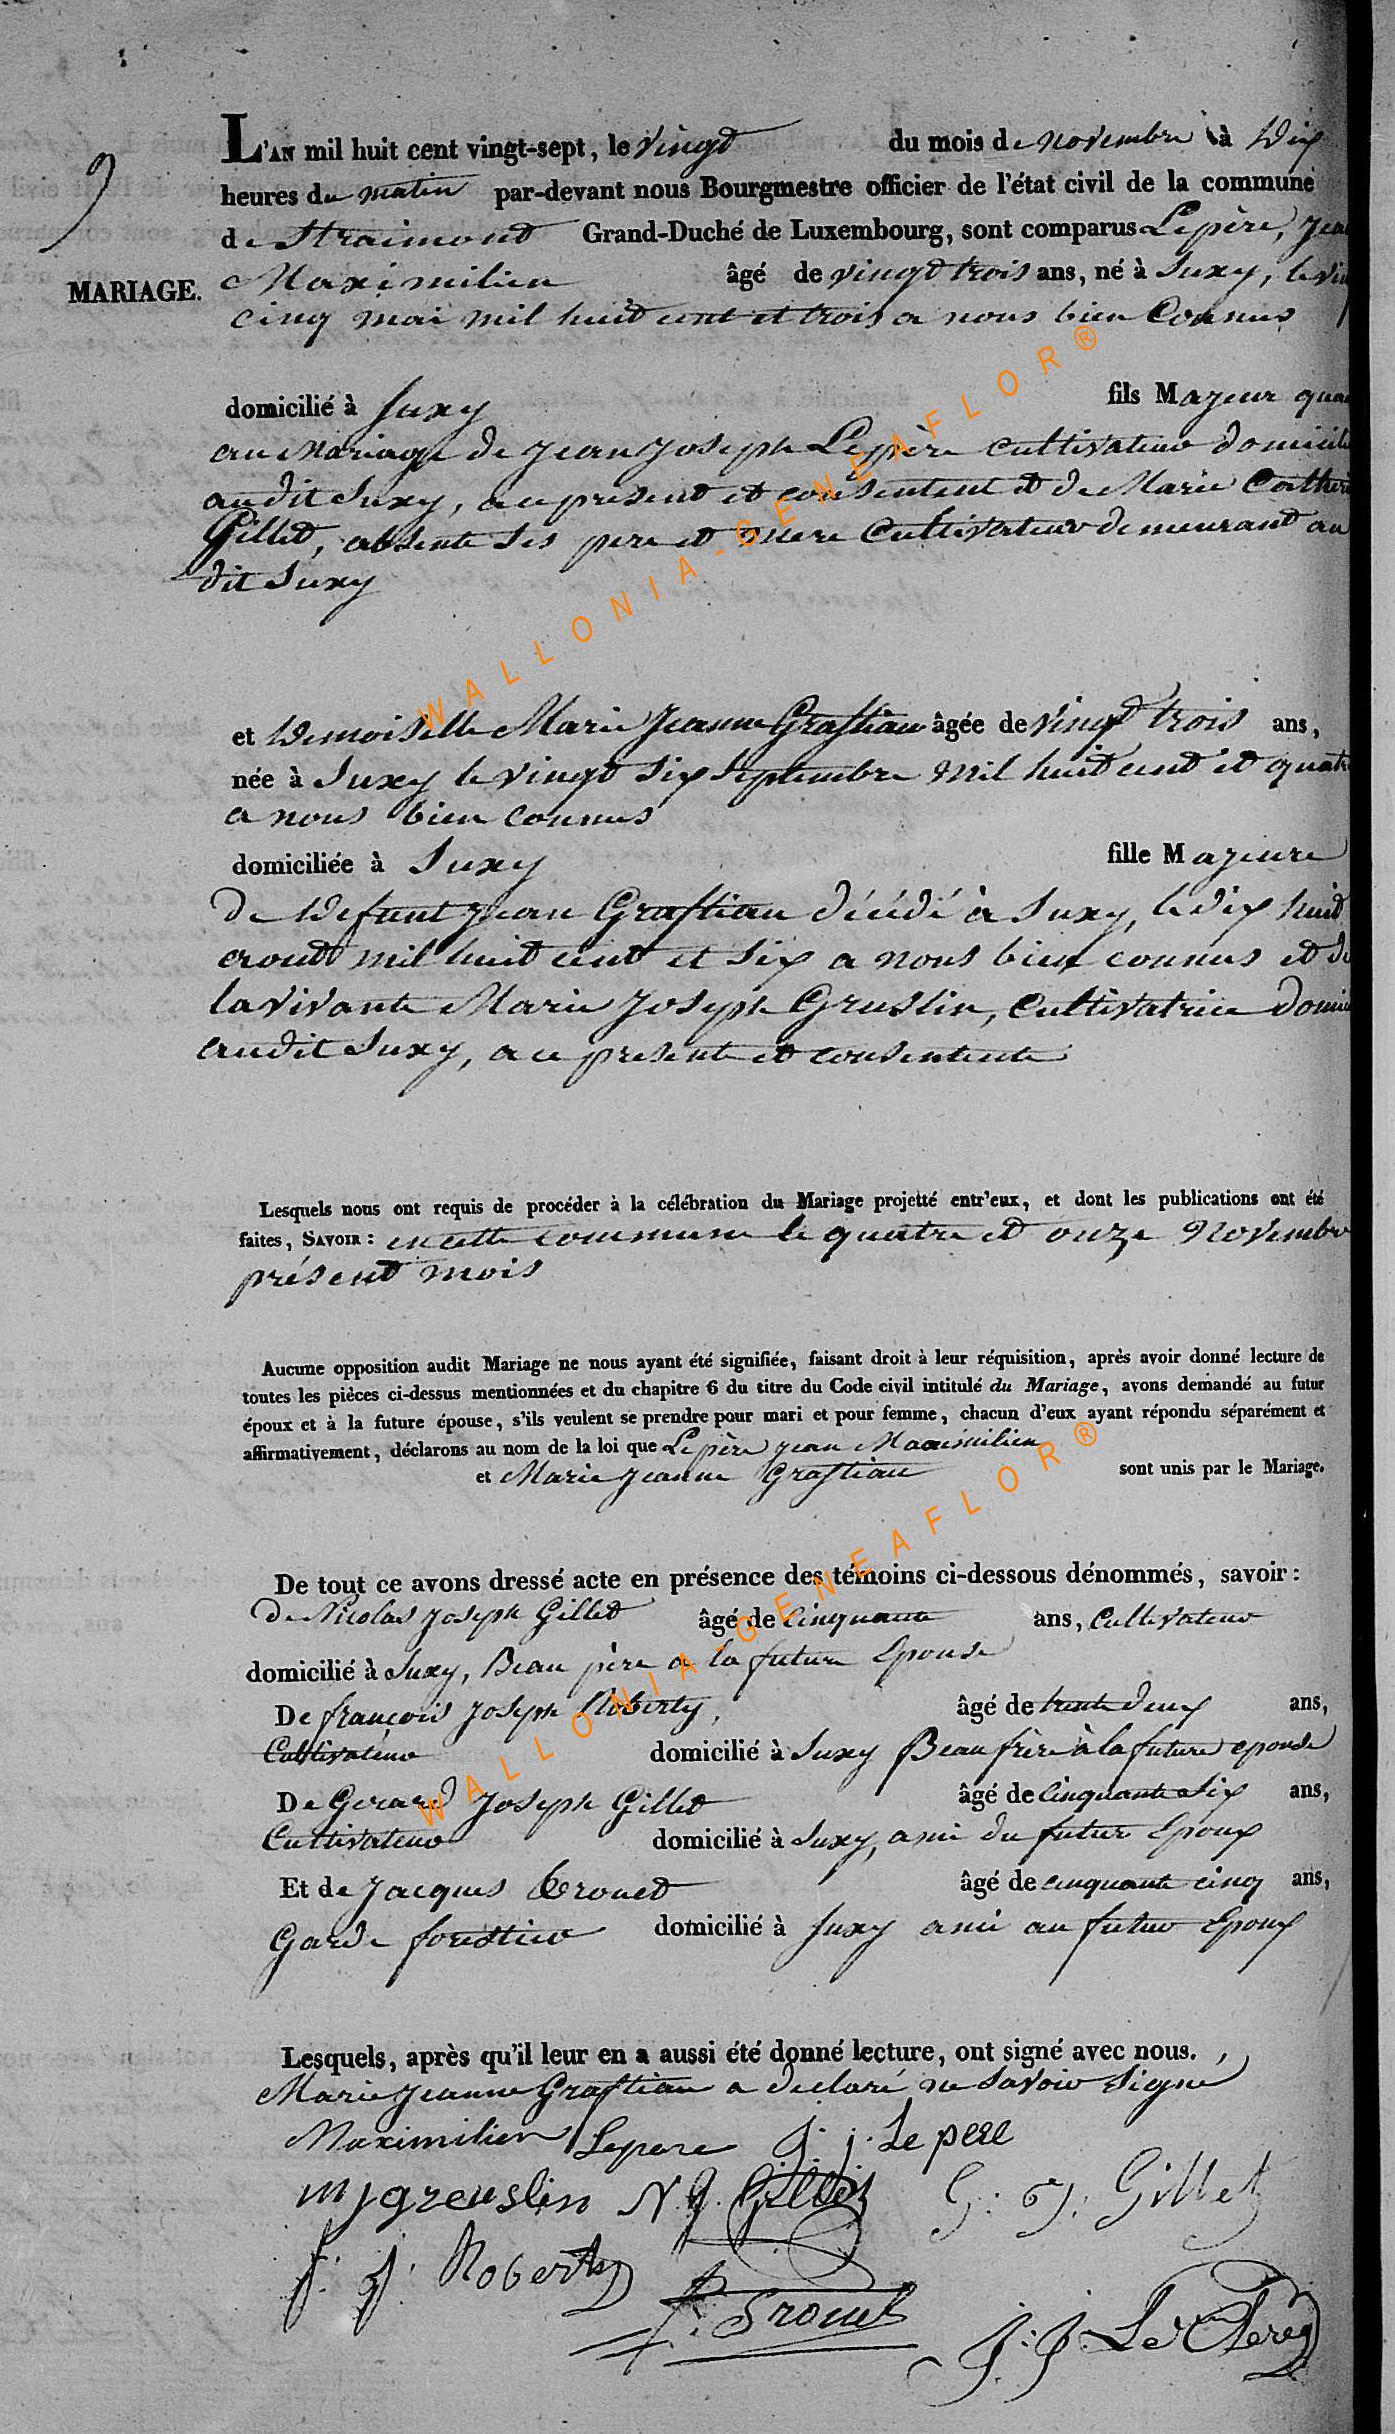 L'AN mil huit cent vingt-sept, le vingt du mois de novembre à Dix
heures du matin par-devant nous Bourgmestre officier de l'état civil de la commune
de Straimont Grand-Duché de Luxembourg, sont comparus Lepère, Jean
MARIAGE. Maximilien âgé de vingt trois ans, né à Suxy, le
cinq mai mil huit cent et trois a nous bien Connus
domicilié à Suxy fils Majeur
au Mariage de Jean Joseph Lepère cultivateur
audit Suxy, a ce present et consentent et de Marie
Gillet, absente ses pere et mere Cultivateur demeurant au
dit Suxy
et Demoiselle Marie Jeanne Grastiau âgée de vingt trois ans,
née à Suxy le vingt six septembre mil huit cent et quatre
a nous bien connus
domiciliée à Suxy fille Majeure
De Defunt Jean Grastiau décédé à Suxy, le dix huit
aoutt mil huit cent et six a nous bien connus et de
la vivante Marie Joseph Gruslin, Cultivatrice
audit Suxy, a ce presente et consentente
Lesquels nous ont requis de procéder à la célébration du Mariage projetté entr'eux, et dont les publications ont été
faites, SAVOIR : en cette commune le quatre et onze Novembre
présent mois
Aucune opposition audit Mariage ne nous ayant été signifiée, faisant droit à leur réquisition, après avoir donné lecture de
toutes les pièces ci-dessus mentionnées et du chapitre 6 du titre du Code civil intitulé du Mariage, avons demandé au futur
époux et à la future épouse, s'ils veulent se prendre pour mari et pour femme, chacun d'eux ayant répondu séparément et
affirmativement, déclarons au nom de la loi que Lepère Jean Maximilien
et Marie Jeanne Grastiau sont unis par le Mariage.
De tout ce avons dressé acte en présence des témoins ci-dessous dénommés, savoir :
De Nicolas Joseph Gillet âgé de Cinquante ans, Cultivateur
domicilié à Suxy, Beau père a la future Epouse
De françois Joseph Roberty, âgé de trente deux ans,
Cultivateur domicilié à Suxy Beau frère à la future epouse
De Gerard Joseph Gillet âgé de Cinquante six ans,
Cultivateur domicilié à Suxy, ami du futur Epoux
Et de Jacques âgé de cinquante cinq ans,
Garde forestier domicilié à Suxy ami au futur Epoux
Lesquels, après qu'il leur en a aussi été donné lecture, ont signé avec nous.
Marie Jeanne Grastiau a declaré ne savoir signe
Maximilien Lepere J. J. Le pere
mj greuslin N. J. Gillet G. J. Gillet
f. J. Roberty
J. J. Le Clereq
WALLONIA-GENEAFLOR®
WALLONIA-GENEAFLOR®